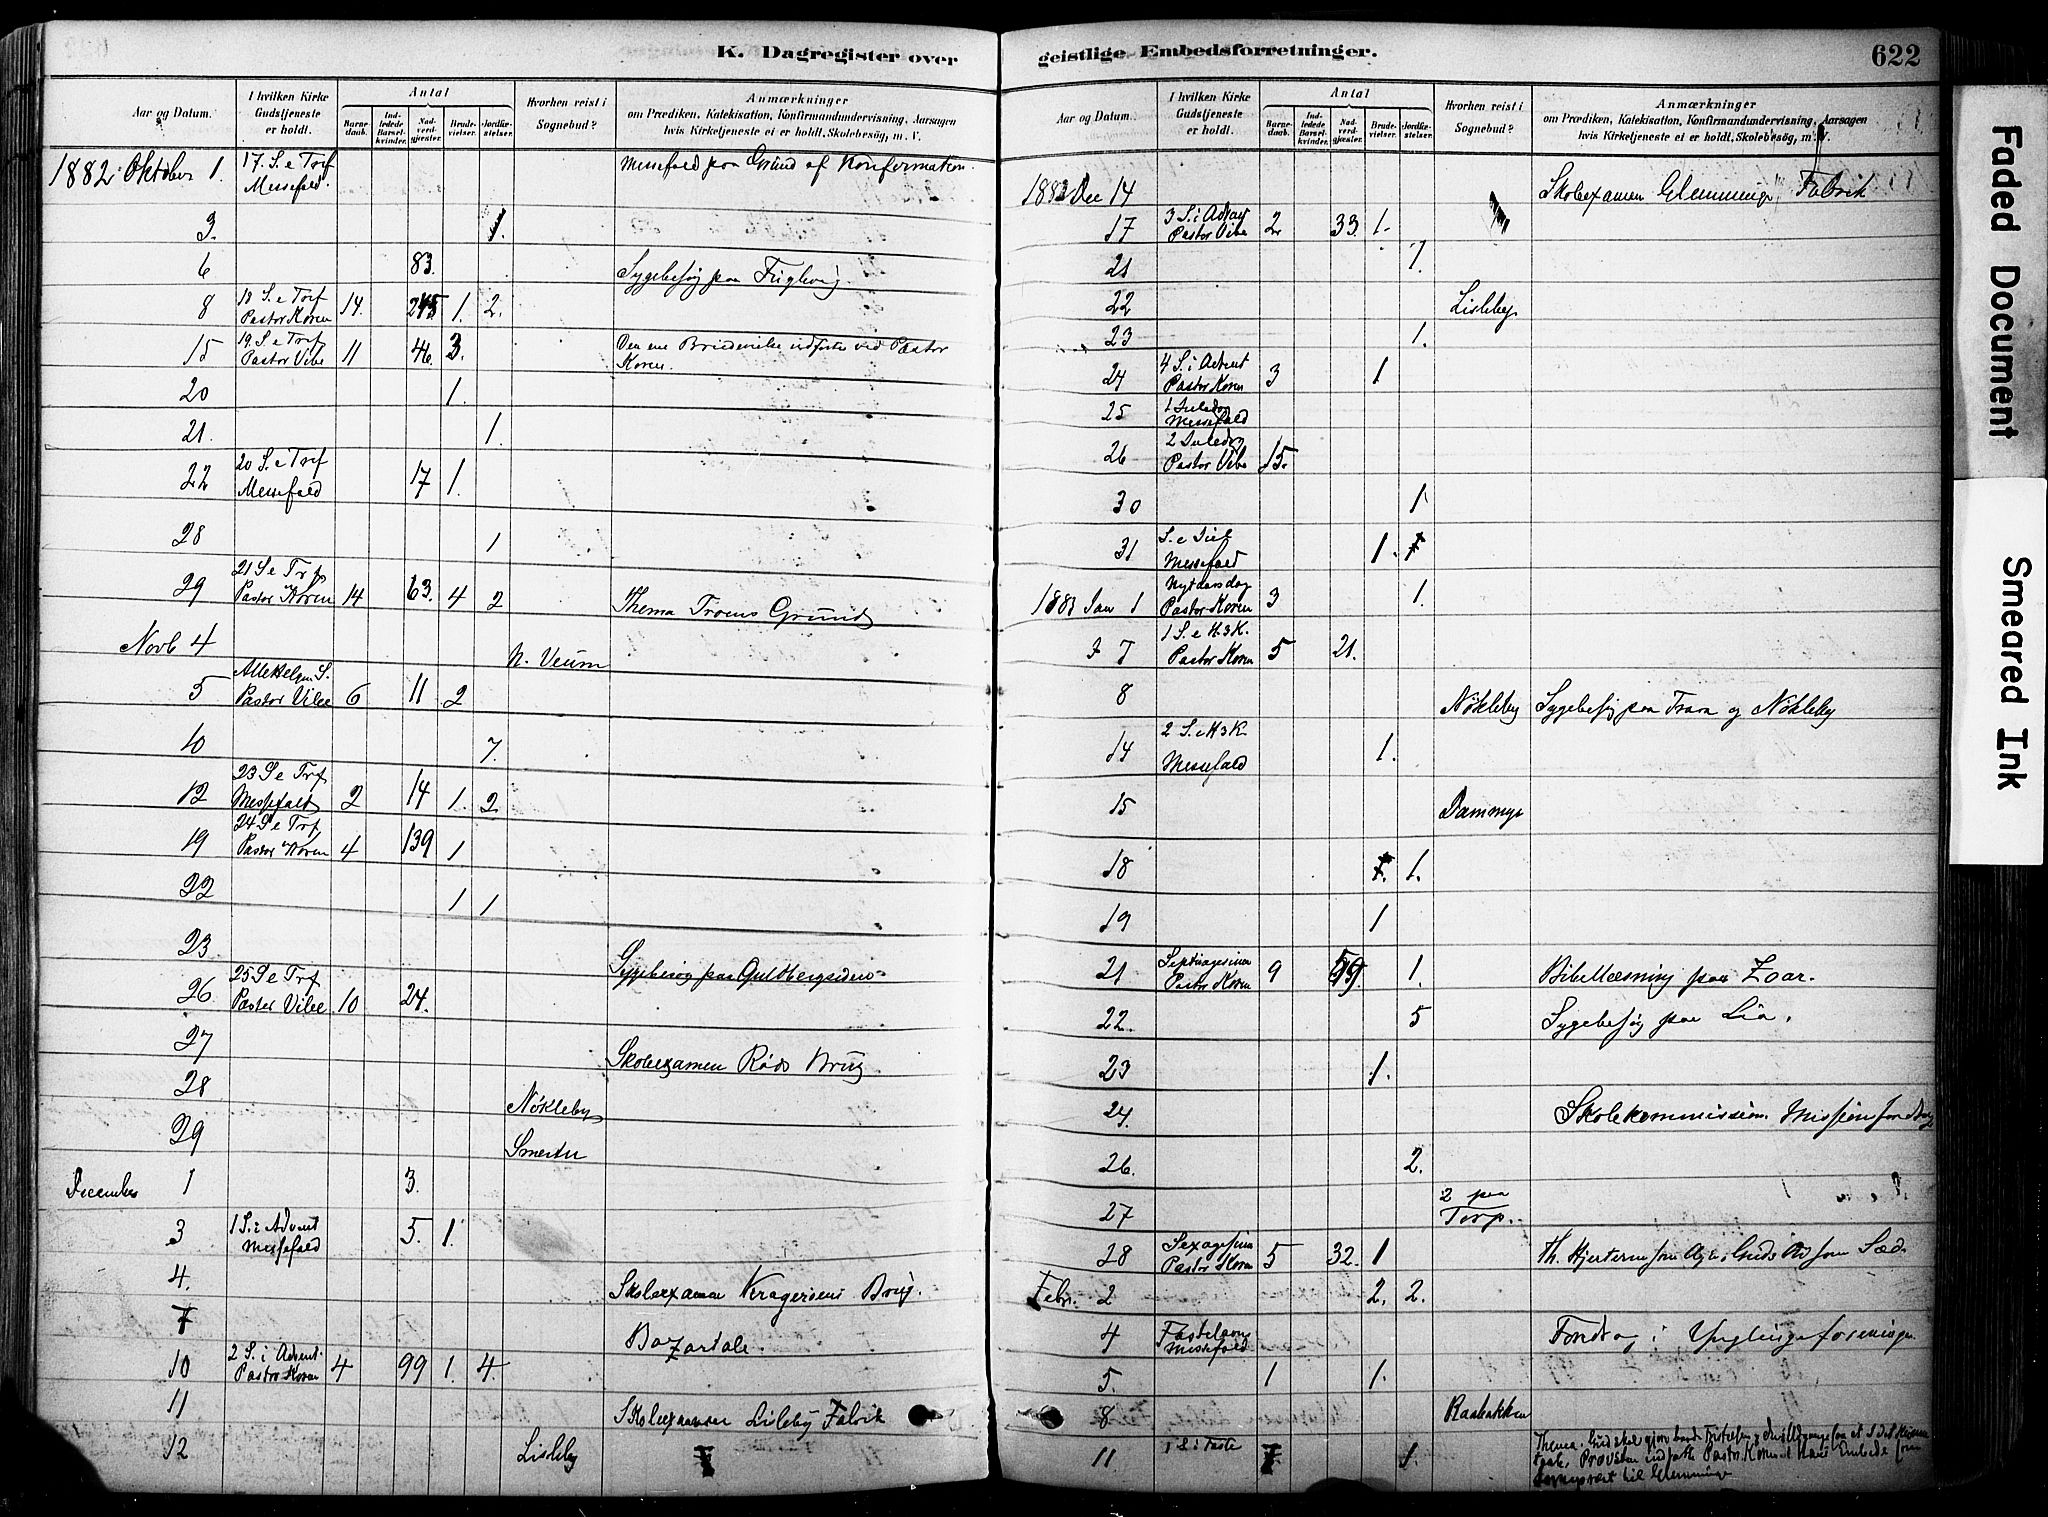 K. Dagregister over
Aar og Datum.
I hvilken Kirke Gudstjeneste er holdt.
Antal
Barnedaab.
Indledede Barselkvinder.
Nadverdgjester.
Brudevielser.
Jordfæstelser.
Hvorhen reist i Sognebud?
Anmærkninger
om Prædiken, Katekisation, Konfirmandundervisning, Aarsagen
hvis Kirketjeneste ei er holdt, Skolebesög, m. V.
1882 Oktober 1. 17. S. e Tref Messefald. Messefald paa Grund af Konfirmation.
3. 1.
6 83. Sygebesøg paa Fuglevig.
8 18 S. e Tref Pastor Koren 14. 245 1. 2.
15 19. S e Tref Pastor Vibe 11 46. 3. Den ene Brudevielse udførtes ved Pastor
Koren.
20 1.
21. 1.
22 20 S. e Tref Messefald 17 1.
28 1
29 21 S e Trf Pastor Koren 14 63. 4 2 Thema Troens Grund
Novb 4 N. Veum
5 Allehelgen S. Pastor Vibe 6 11 2
10 7.
12 23 S e Trf Messefald 2 14 1. 2
19 24 S e Trf Pastor Koren 4 139 1
22 1 1
23 Sygebesøg paa Guldbergsiden
26 25 S e Trf Pastor Vibe 10 24.
27 Skoleexamen Røds Brug.
28 Nøkleby
29
December 1 3.
3 1 S. i Advent Messefald 5. 1.
4. Skoleexamen Kragerøens Brug.
7 Bazartale.
10 2 S. i Advent Pastor Koren 4 99 1. 4.
11 Skoleexamen Lisleby Fabrik
12 Lisleby
geistlige Embedsforretninger.
622
Aar og Datum.
I hvilken Kirke Gudstjeneste er holdt.
Antal
Barnedaab.
Indledede Barselkvinder.
Nadverdgjester.
Brudevielser.
Jordfæstelser.
Hvorhen reist i Sognebud?
Anmærkninger
om Prædiken, Katekisation, Konfirmandundervisning, Aarsagen
hvis Kirketjeneste ei er holdt, Skolebesög, m. V.
1882 Dec 14 Skoleexamen Glemminge Fabrik
17 3 S. i Advent Pastor Vibe 2. 33. 1.
21 7.
22 Lisleby
23 1.
24 4 S. i Advent Pastor Koren 3 1
25 1 Juledag Messefald
26 2 Juledag Pastor Vibe 15.
30 1
31 S. e Jul Messefald 1.
1883 Jan 1 Nytaarsdag Pastor Koren 3 1.
7 1 S. e H. 3 K. Pastor Koren 5 21.
8 Nøkleby Sygebesøg paa Trara og Nøkleby
14 2 S. e H 3 K. Messefald 1.
15 Dammyr
18 1.
19 1
21 Septuagesima Pastor Koren 9 59. 1. Bibellæsning paa Zoar.
22. 5 Sygebesøg paa Lia.
23 1.
24. Skolekommission. Missionsforedrag
26. 2.
27 2 paa Torp.
28 Sexagesima Pastor Koren 5 32. 1 Th. Hjerterne som Ager, Guds Ord som Sæd.
Febr. 2 2. 2.
4 Fastelavn Messefald Foredrag i Ynglingeforeningen
5. 1 1.
8 Raabakken
11 1 S. i Faste 1.
til Glemminge
Faded Document
Smeared Ink